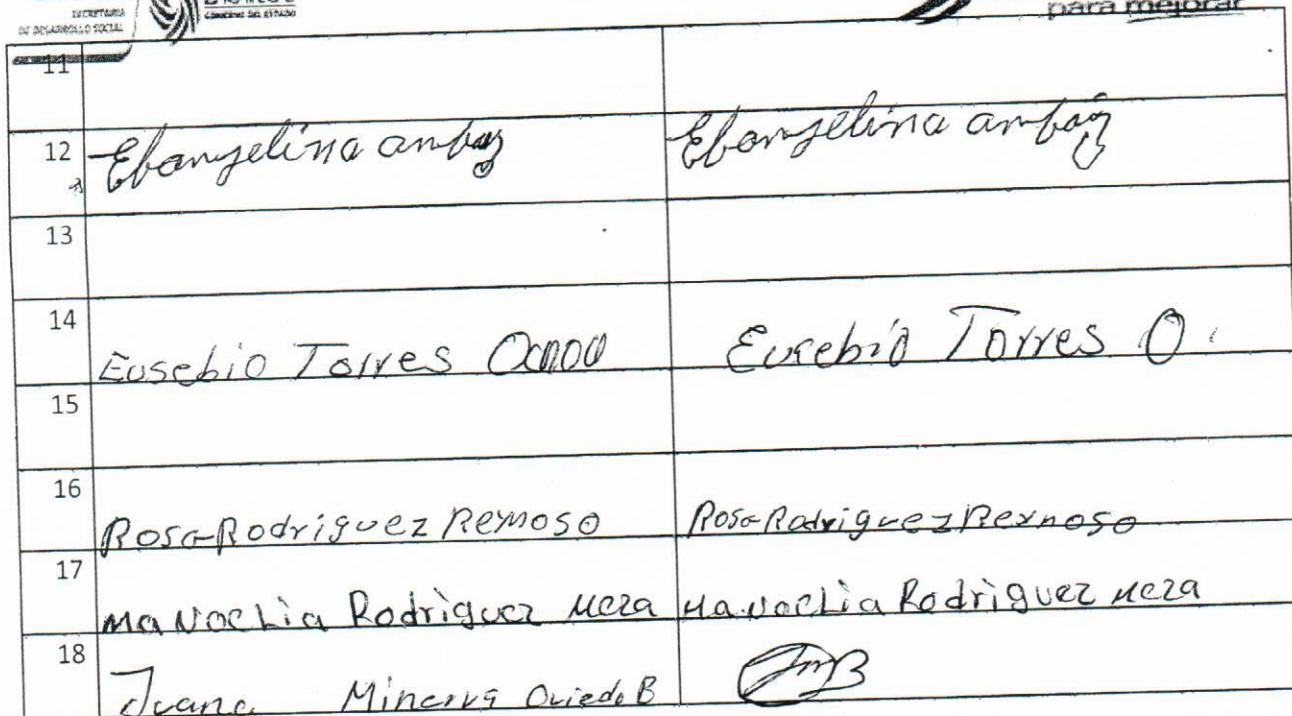 SECRETARIA
DE DESARROLLO SOCIAL
GOBIERNO DEL ESTADO
para mejorar
11
12 Ebangelina ambaz Ebangelina ambaz
13
14 Eusebio Torres Eusebio Torres O.
15
16 Rosa Rodriguez Reynoso Rosa Rodriguez Reynoso
17 Ma Noelia Rodriguez Meza Ma Noelia Rodriguez Meza
18 Juana Minerva Oviedo B JmB